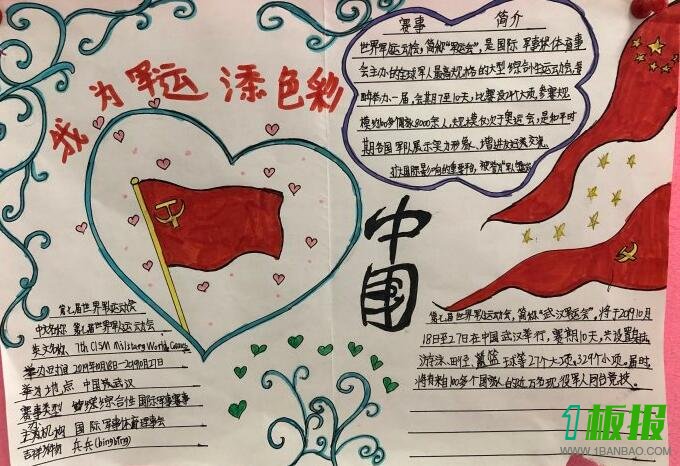 我为军运添色彩
赛事 简介
世界军人运动会,简称"军运会",是国际军事体育理事
会主办的全球军人最高规格的大型综合性运动会,每
四年举办一届,会期7至10天,比赛设27个大项,参赛规
模约100多个国家8000余人,规模仅次于奥运会,是和平时
期各国军队展示实力形象、增进友好交流、
扩大国际影响的重要平台,被誉为
中国
第七届世界军人运动会
中文名称 第七届世界军人运动会
英文名称 7th CISM Military World Games
举办时间 2019年10月18日-2019年10月27日
举办地点 中国武汉
赛事类型 综合性国际军事赛事
主办机构 国际军事体育理事会
吉祥物 兵兵(bingbing)
第七届世界军人运动会,简称"武汉军运会",将于2019年10月
18日至27日在中国武汉举行,赛期10天,共设置射击、
游泳、田径、篮球等27个大项、329个小项。届时
将有来自100多个国家的近万名现役军人同台竞技。
1板报
WWW.1BANBAO.COM